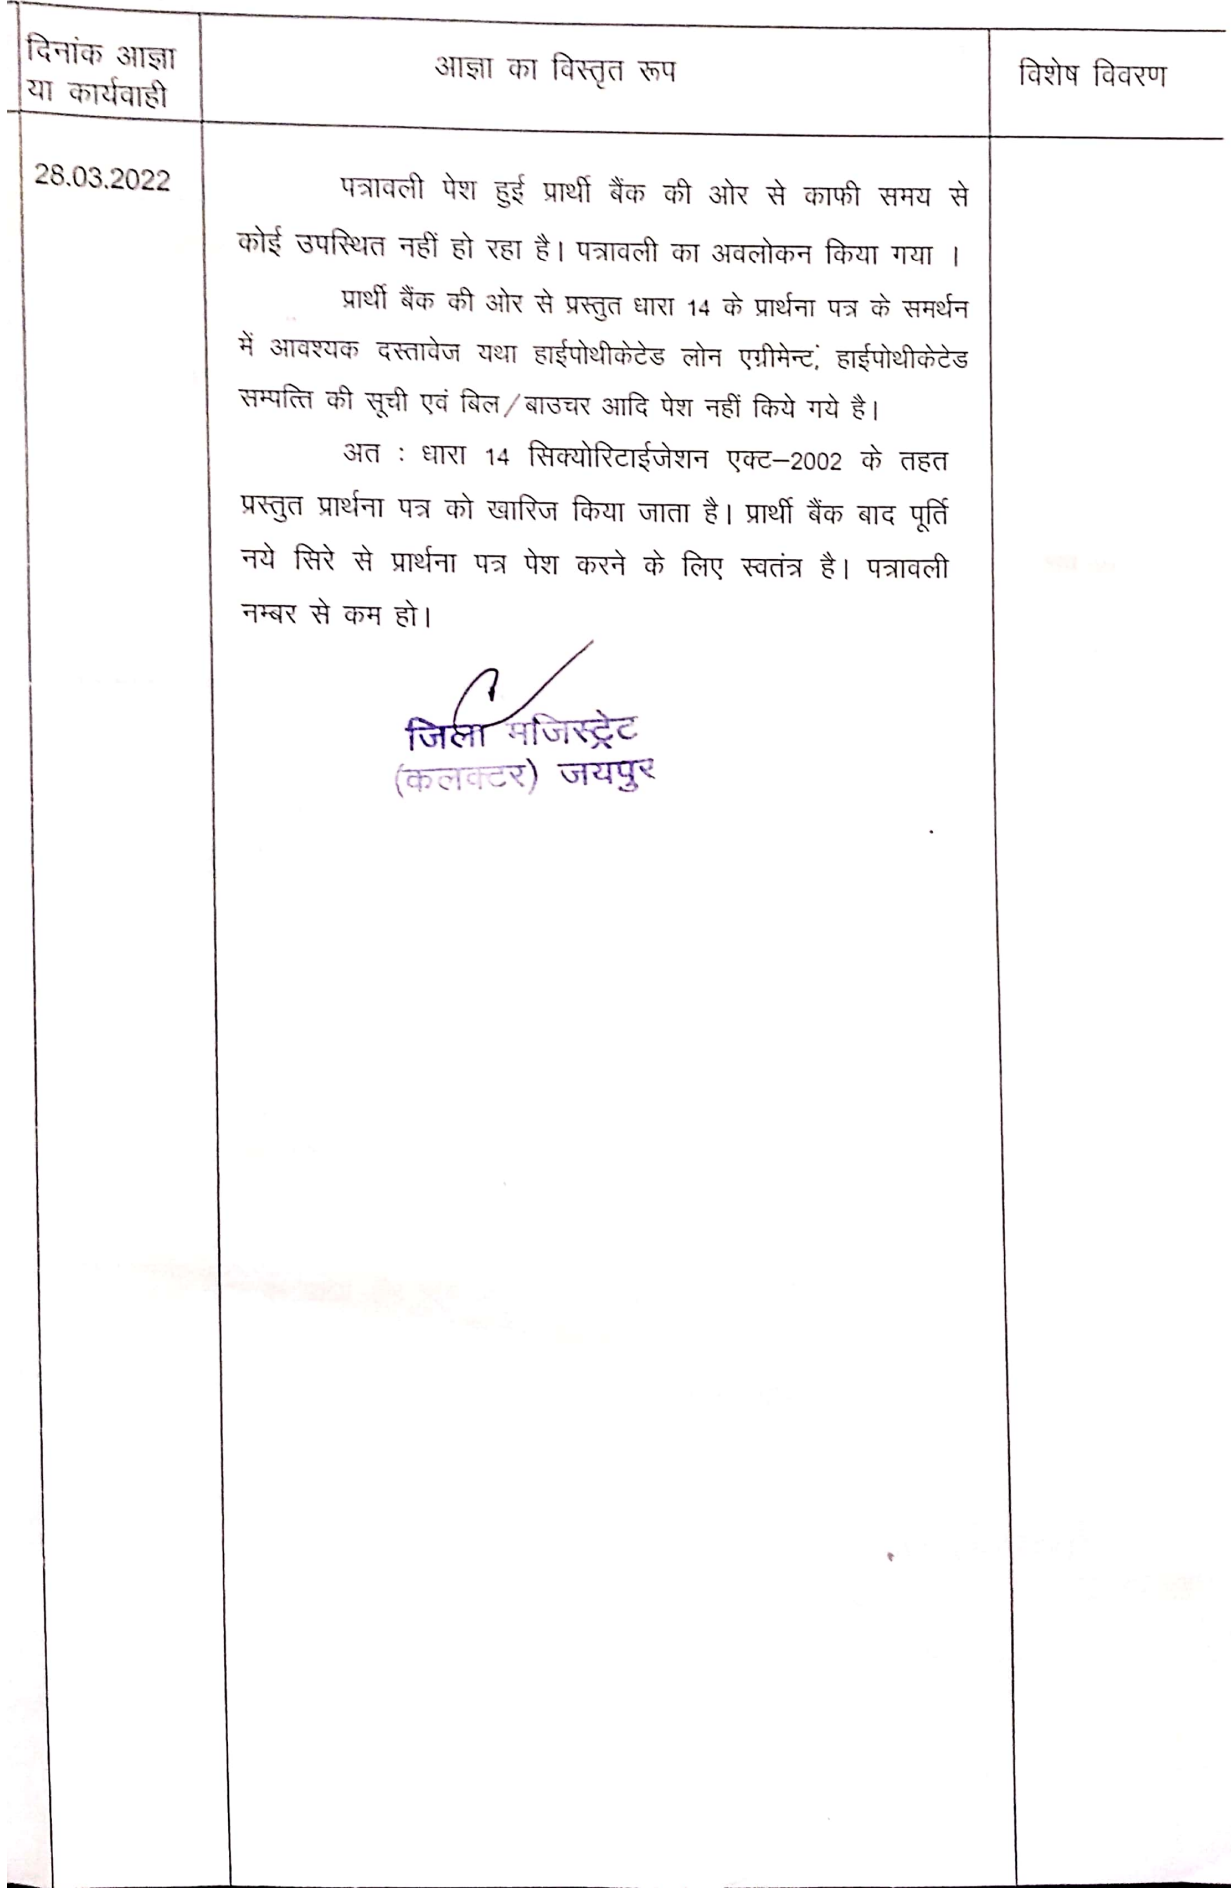 दिनांक आज्ञा
या कार्यवाही
आज्ञा का विस्तृत रूप
विशेष विवरण
28.03.2022
पत्रावली पेश हुई प्रार्थी बैंक की ओर से काफी समय से
कोई उपस्थित नहीं हो रहा है। पत्रावली का अवलोकन किया गया ।
प्रार्थी बैंक की ओर से प्रस्तुत धारा 14 के प्रार्थना पत्र के समर्थन
में आवश्यक दस्तावेज यथा हाईपोथीकेटेड लोन एग्रीमेन्ट, हाईपोथीकेटेड
सम्पत्ति की सूची एवं बिल/बाउचर आदि पेश नहीं किये गये है।
अत : धारा 14 सिक्योरिटाईजेशन एक्ट–2002 के तहत
प्रस्तुत प्रार्थना पत्र को खारिज किया जाता है। प्रार्थी बैंक बाद पूर्ति
नये सिरे से प्रार्थना पत्र पेश करने के लिए स्वतंत्र है। पत्रावली
नम्बर से कम हो।
जिला मजिस्ट्रेट
(कलक्टर) जयपुर